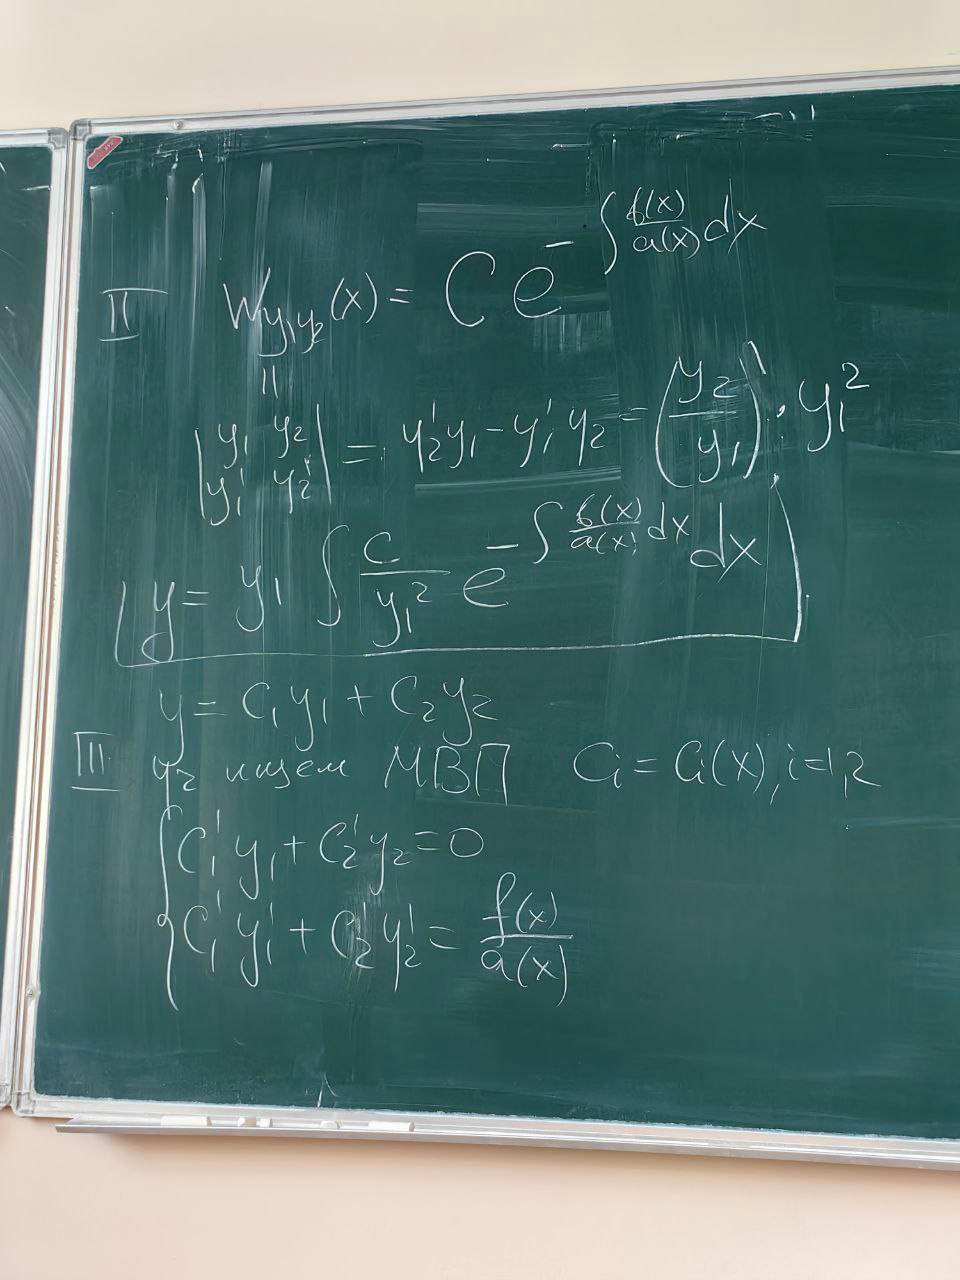 II W_{y₁y₂}(x) = C e^{-∫ b(x)/a(x) dx}
||
|y₁ y₂; y₁' y₂'| = y₂'y₁ - y₁'y₂ = (y₂/y₁)' · y₁²
y = y₁ ∫ C/y₁² e^{-∫ b(x)/a(x) dx} dx
y = C₁y₁ + C₂y₂
III y₂ ищем МВП Cᵢ = Cᵢ(x), i=1,2
{ C₁'y₁ + C₂'y₂ = 0
C₁'y₁' + C₂'y₂' = f(x)/a(x)